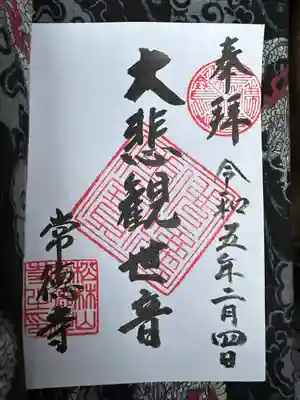 奉拝
令和五年二月四日
大悲観世音
常徳寺